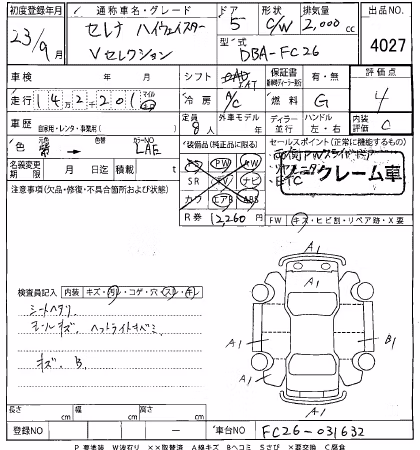 初度登録年月 通称車名・グレード ドア 形状 排気量 出品NO.
23/9月 セレナ ハイウェイスター Vセレクション 5 C/W 2,000cc 4027
型式 DBA-FC26
車検 年 月 シフト 保証書 有・無 評価点
走行 142201 マイル km 冷房 A/C 燃料 G 4
車歴 自家用・レンタ・事業用( ) 定員 8人 外車モデル 年 ディーラー 並行 ハンドル 左・右 内装評価 C
色 元色 紫 → 色替 カラーNO LAE 装備品(純正品に限る) セールスポイント(正常に機能するもの)
名義変更期限 月 日迄 積載 t PS PW AW 両側PWスライドドア
注意事項(欠品・修復・不具合箇所および状態) SR TV ナビ ETC
カワ エアB ABS ノークレーム車
R券 12,260円 FW (キズ・ヒビ割・リペア跡・X要
A1
検査員記入 内装 キズ・汚レ・コゲ・穴(スレ・キレ
シートヘタリ
ホールキズ、ヘッドライトキバミ
キズ、B
A1 A1 B1 A1 A1
長さ cm 幅 cm 高さ cm
登録NO ー 車台NO FC26-031632
P 要塗装 W波有リ ××取替済 A線キズ Bヘコミ Sさび ×要交換 C腐食